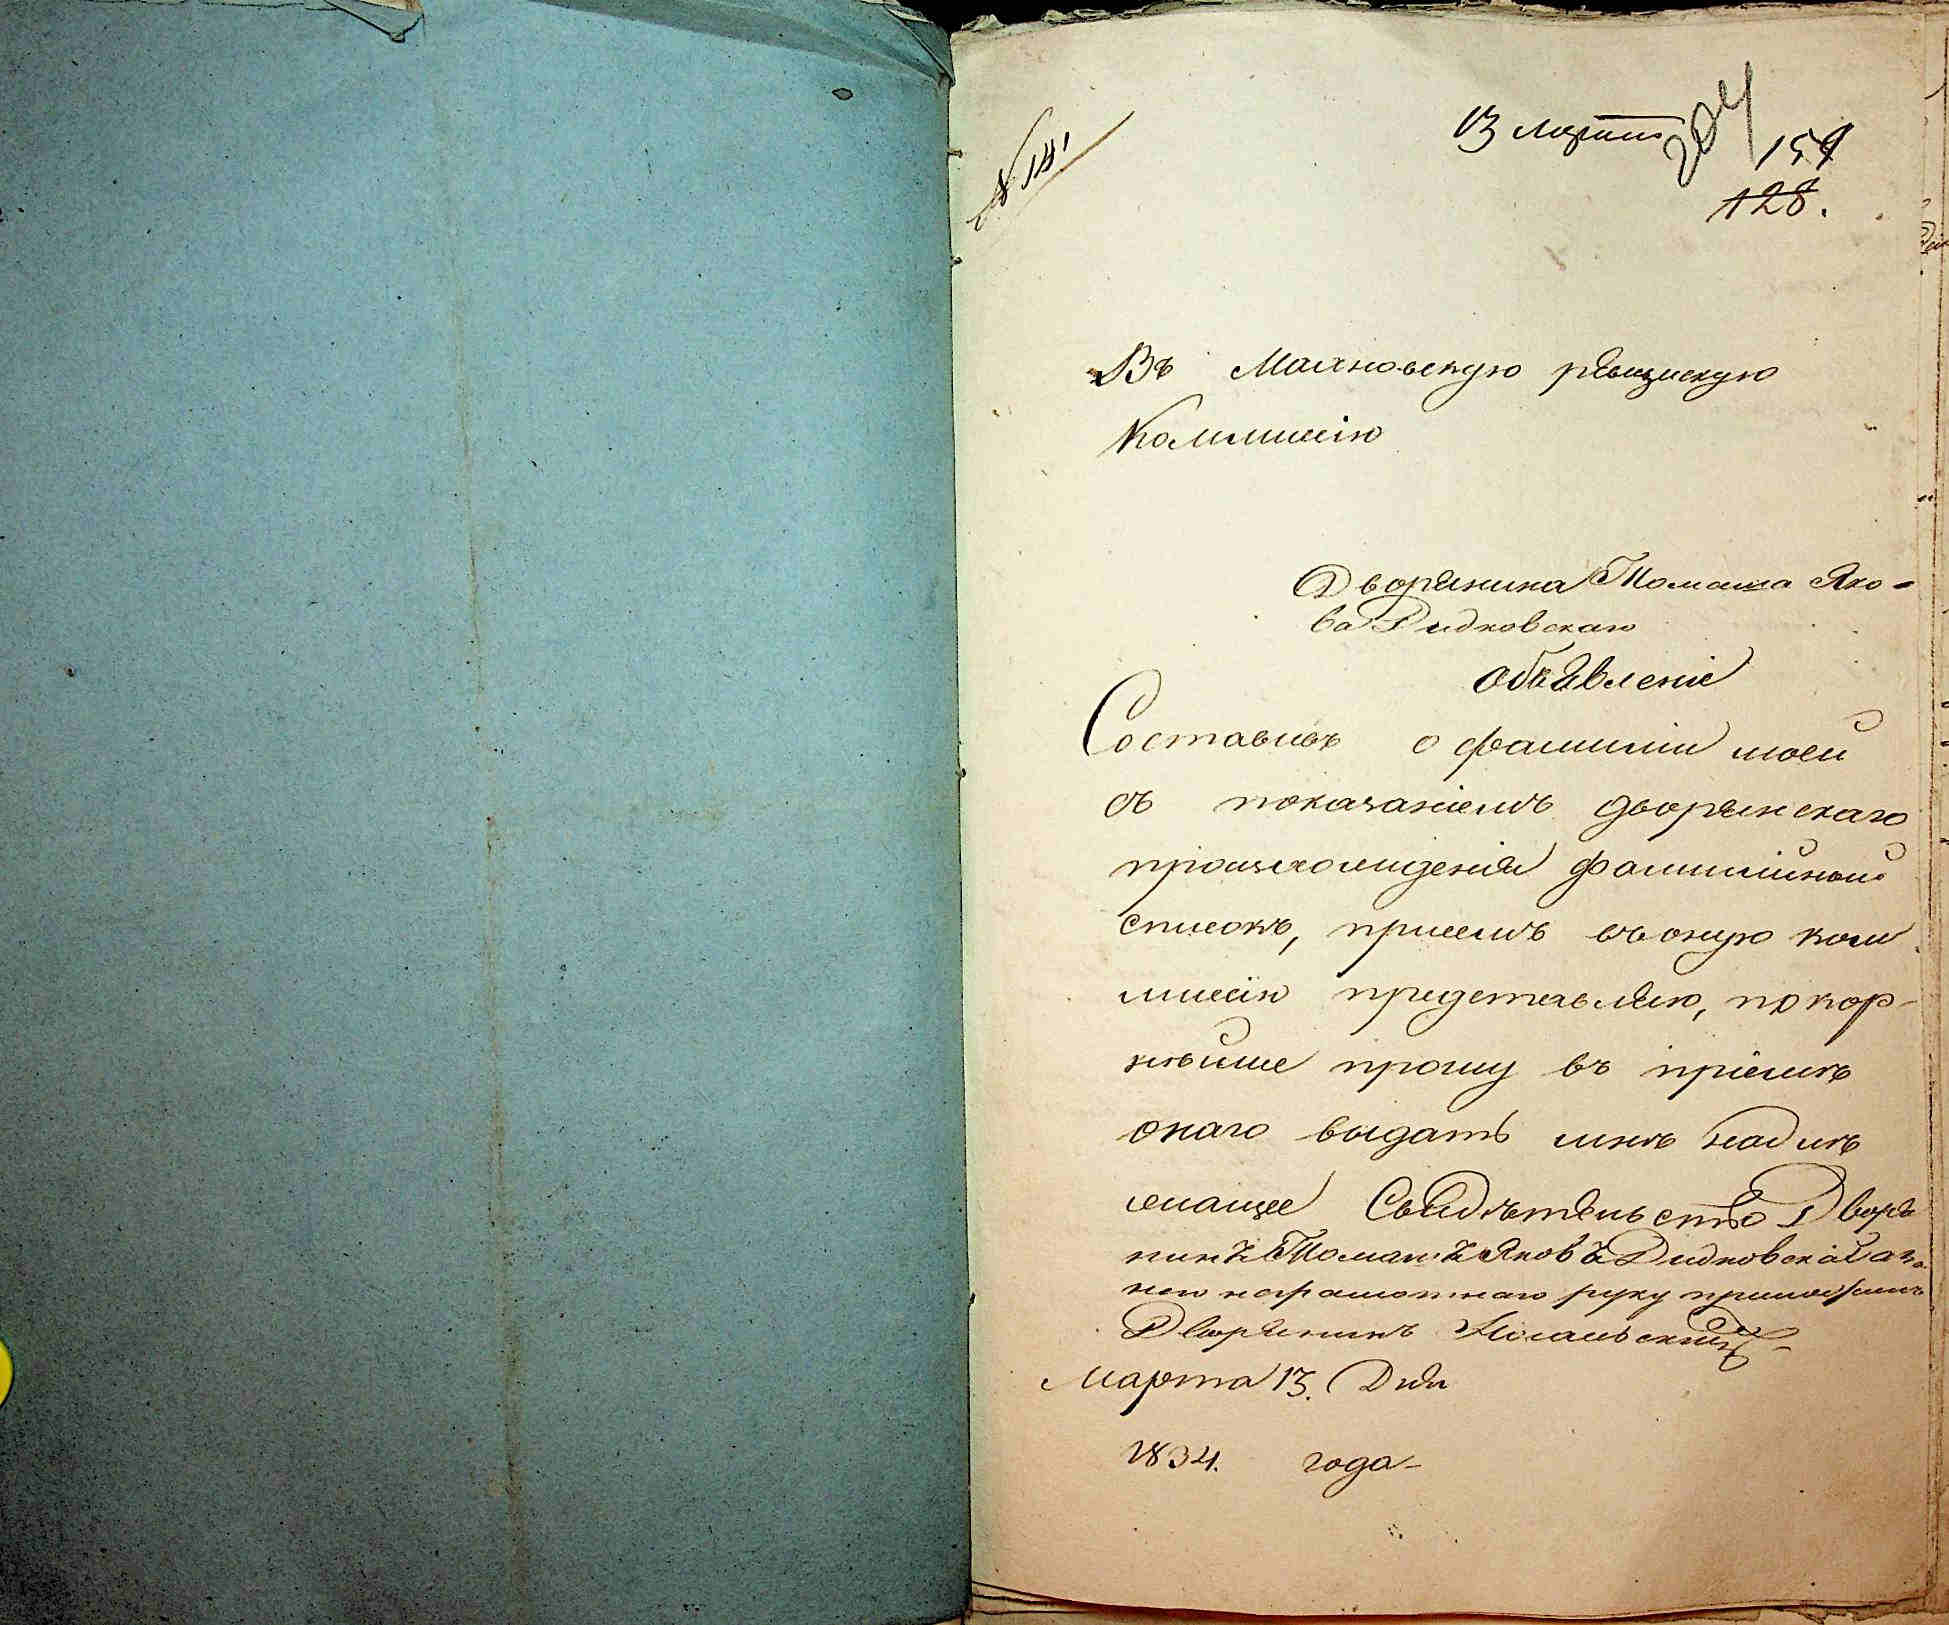 № 141
13 марта
204
159
128.
Въ Маяновскую ревизскую
Коммисію
Дворянина Томаша Яко-
ва Ридковскаго
объявленіе
Составивъ о фамиліи моей
съ показаніемъ дворянскаго
происхожденія фамилійной
списокъ, присемъ въ оную ком
мисію предетавляю, покор-
нѣйше прошу въ пріемѣ
онаго выдать мнѣ надлѣ
жащее Свидѣтельство Дворя
нинъ Томашъ Яковъ Ридковскій а за
него неграмотнаго руку приложилъ
Дворянинъ
Марта 13. Дня
1834. года